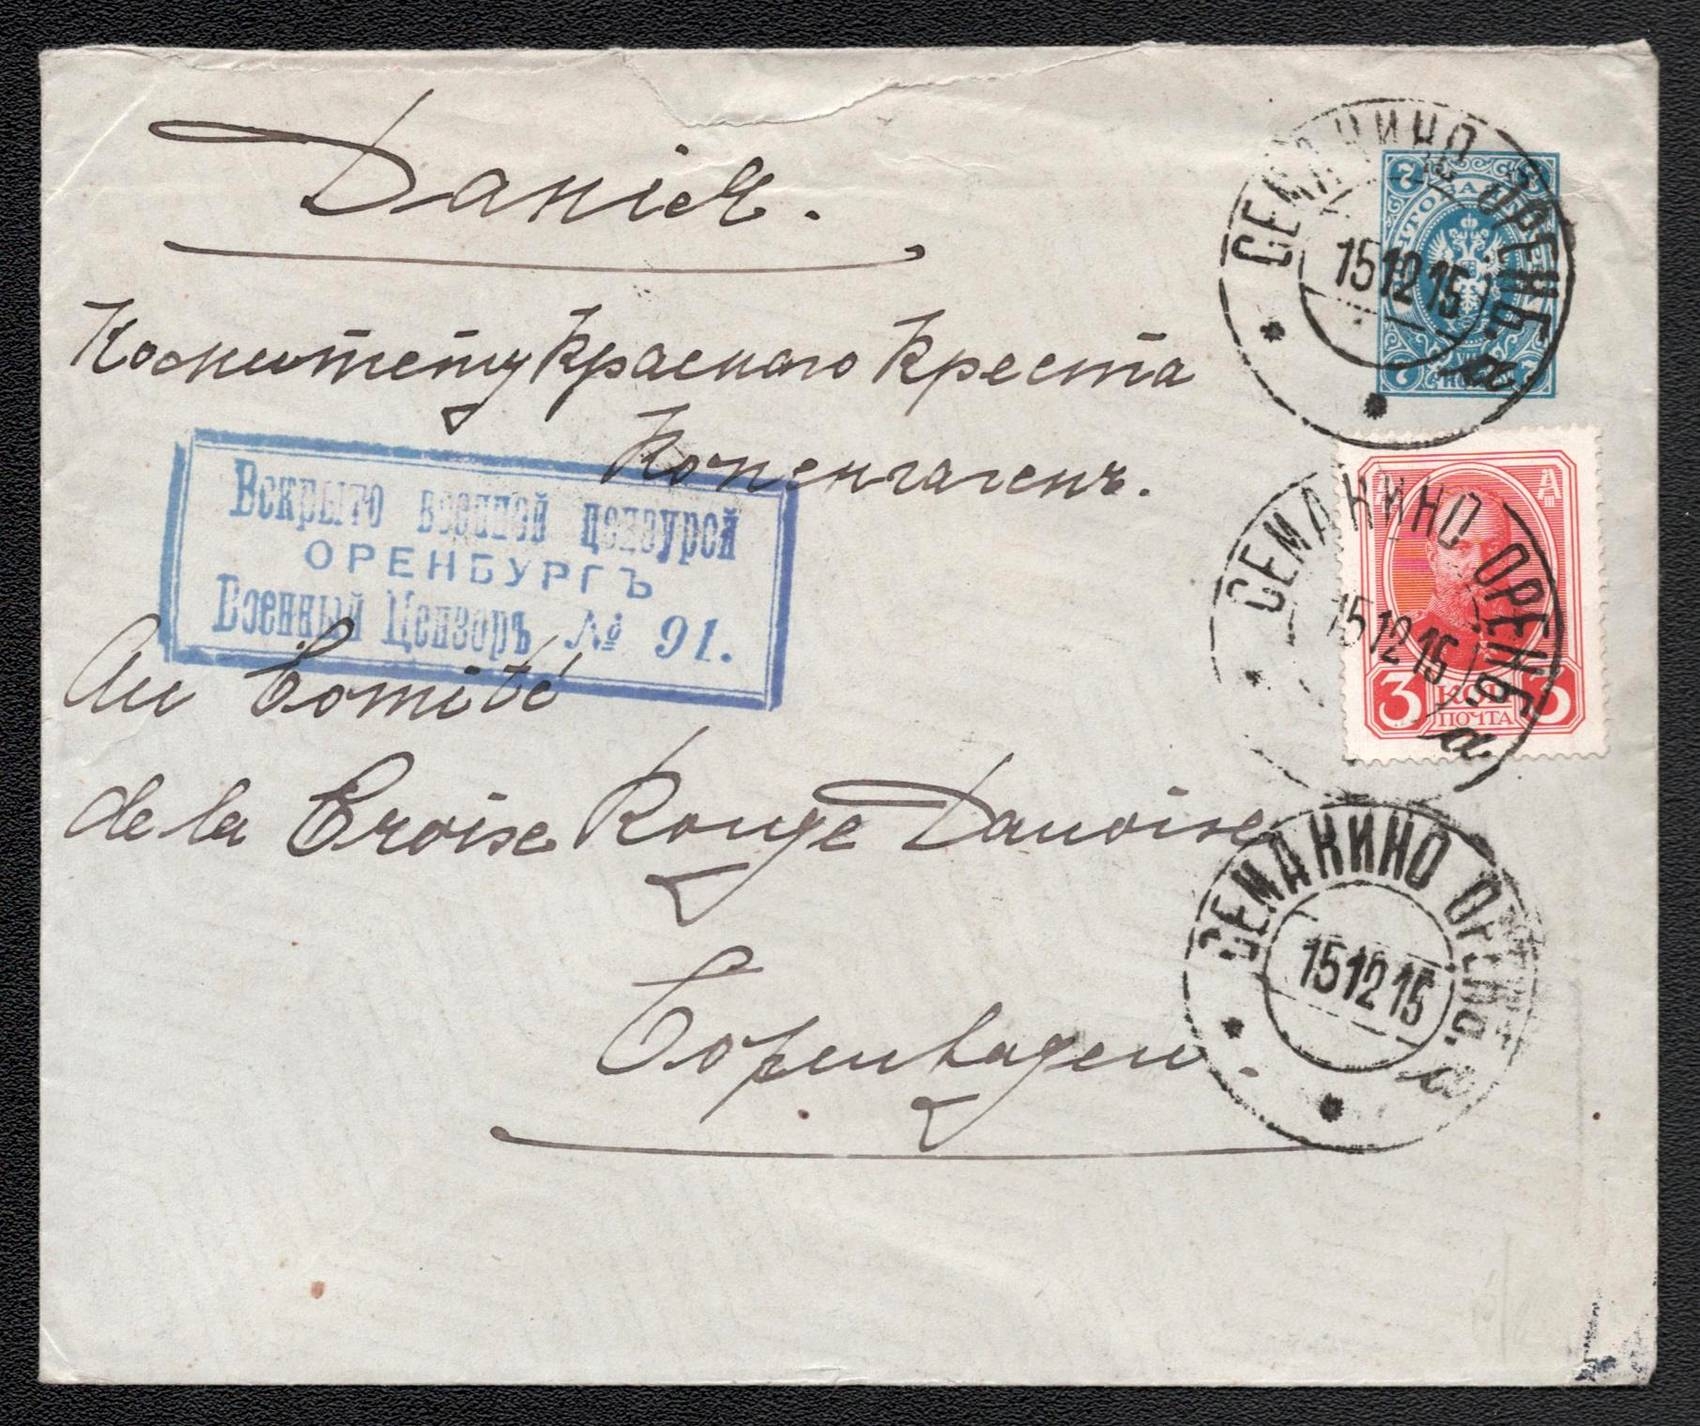 Данія.
Комитету Краснаго Креста
Копенгагенъ.
Вскрыто военной цензурой
ОРЕНБУРГЪ
Военный Цензоръ № 91.
Au Comité
de la Croise Rouge Danoise
Copenhagen.
СЕМАКИНО ОРЕНБ.
15 12 15
а
7
7
СЕМАКИНО ОРЕНБ.
15 12 15
а
3 КОП 3
ПОЧТА
СЕМАКИНО ОРЕНБ.
15 12 15
а